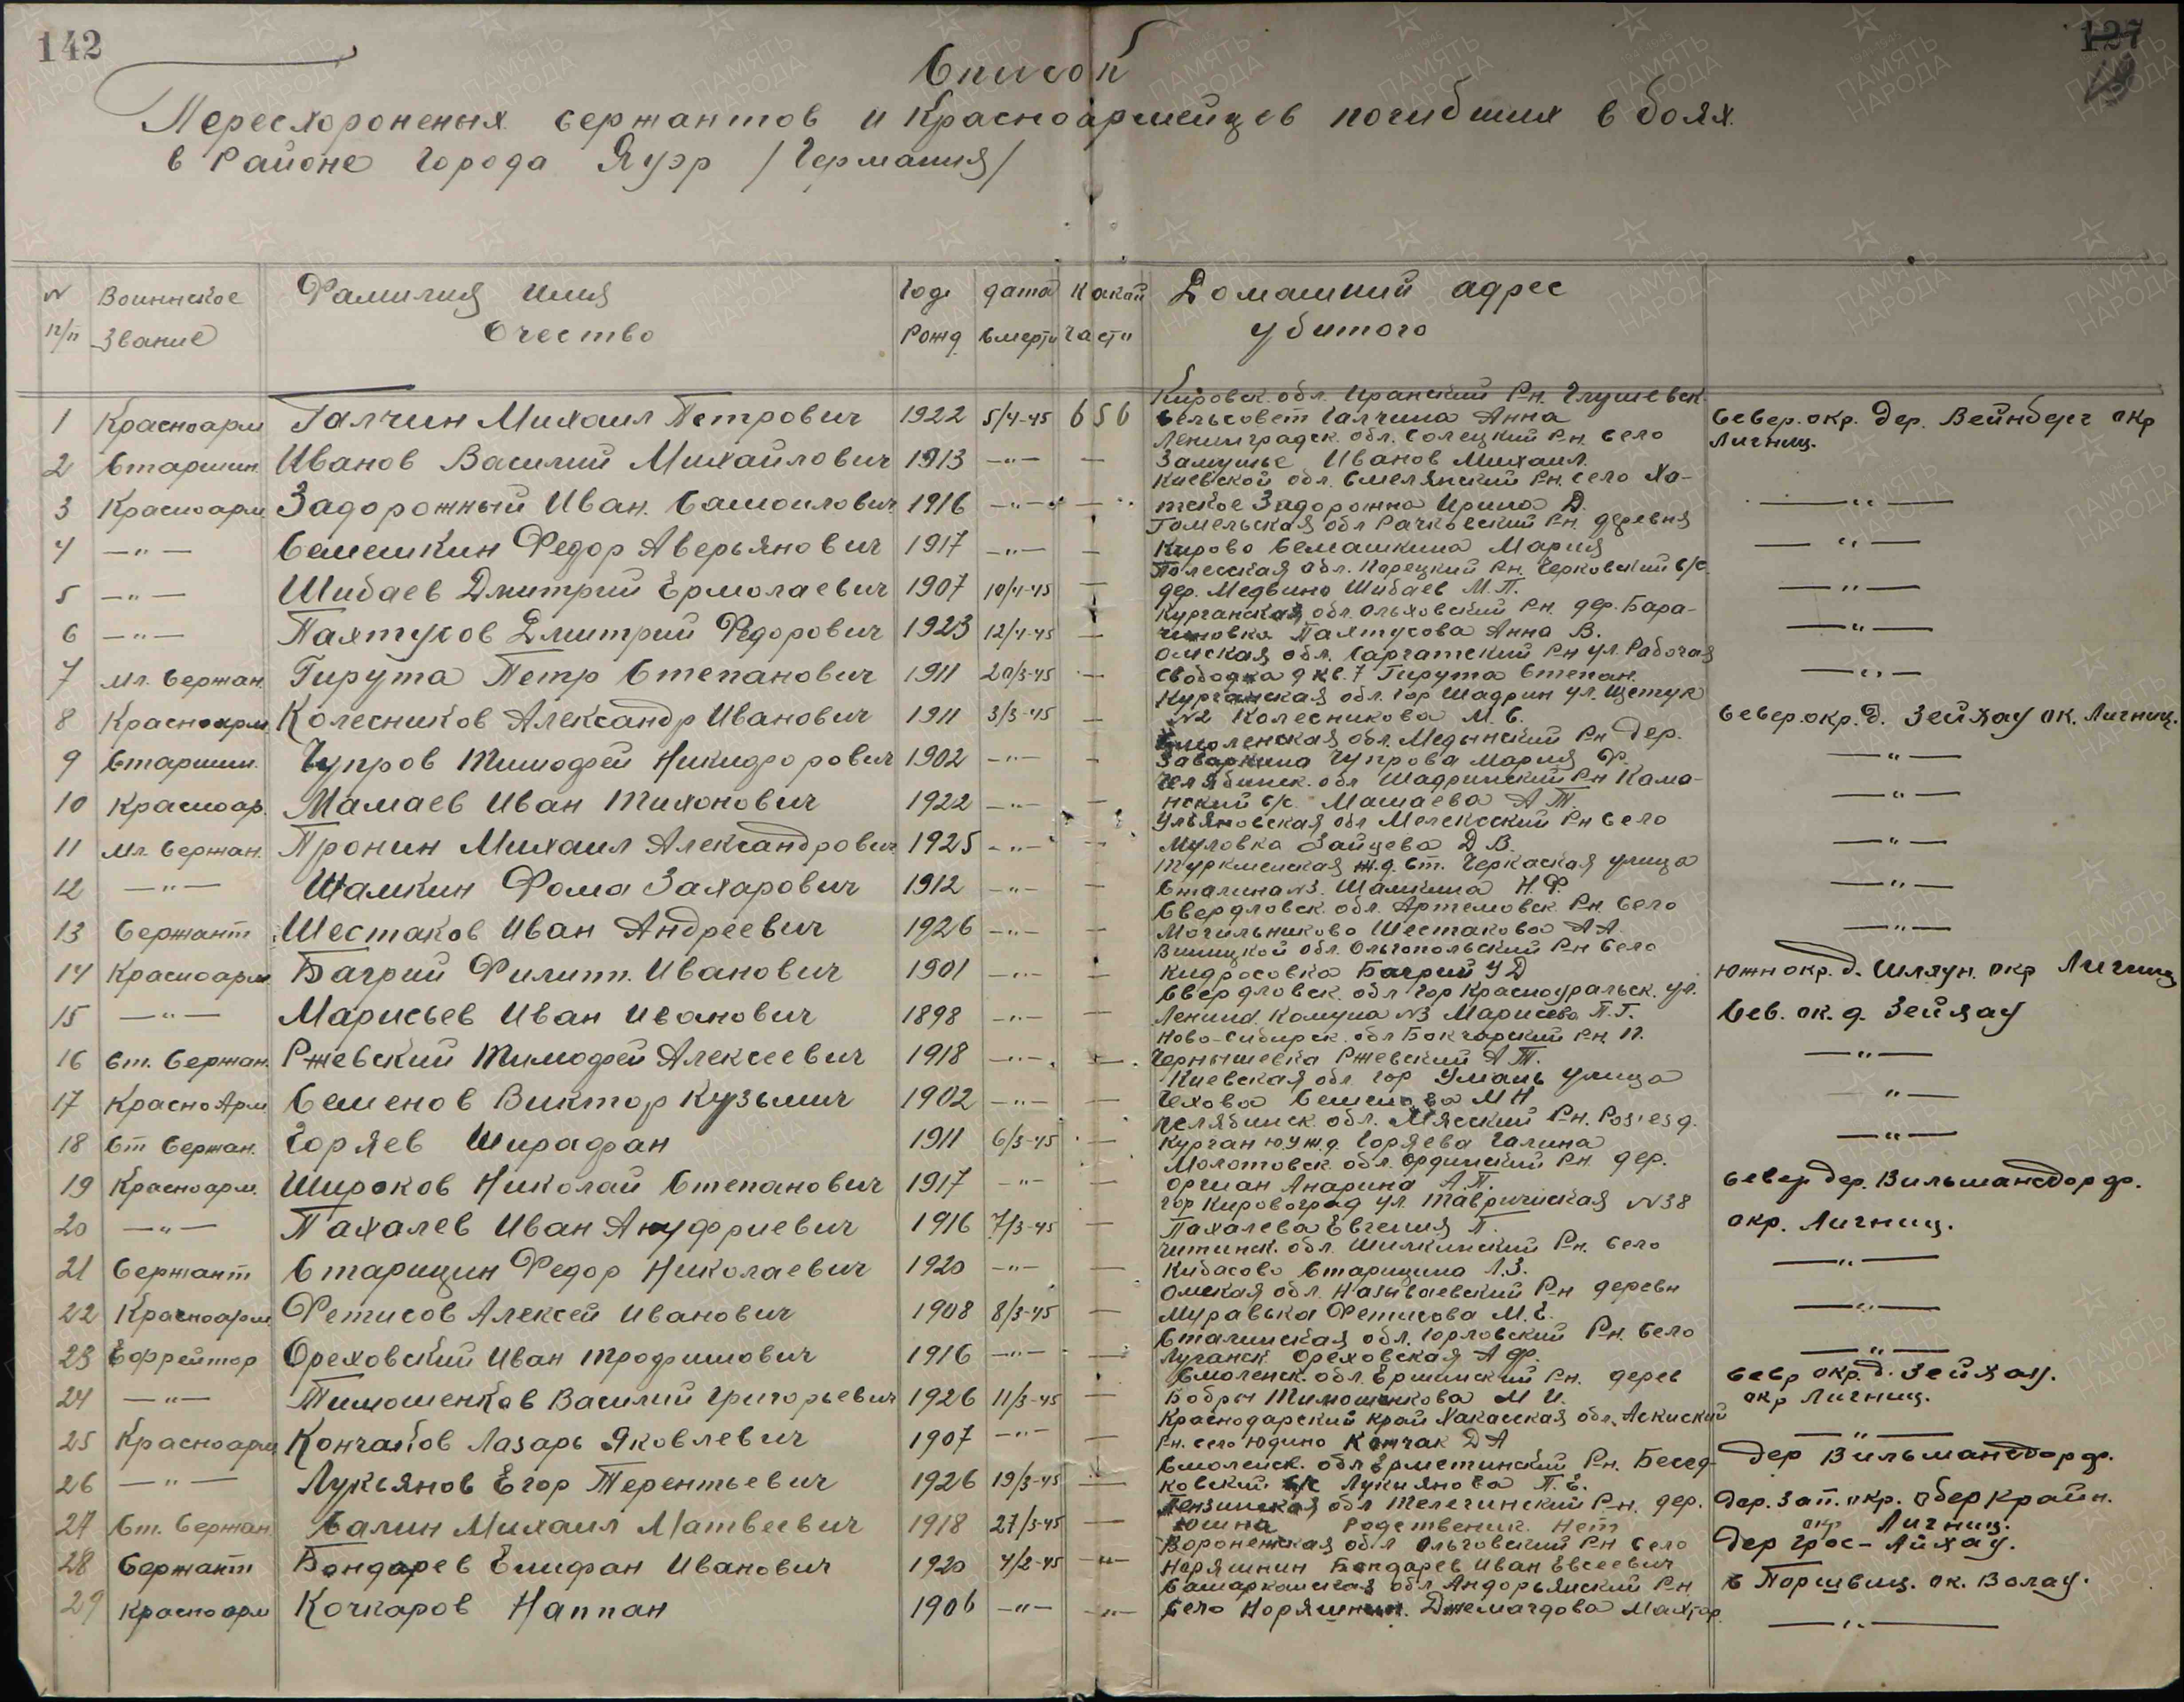 142
127
Список
Пересхороненых сержантов и Красноармейцев погибших в боях
в Районе города Яуэр /Германия/
N п/п Воиннское Звание Фамилия Имя Очество Годе Рожд дата Смерти Какой части Домашний адрес убитого
1 Красноарм Галчин Михаил Петрович 1922 5/4-45 656 Кировск. обл. Иранский Рн. Глушевск сельсовет Галчина Анна Север. окр. Дер. Вейнберг окр Лигниц.
2 Старшин. Иванов Василий Михайлович 1913 —"— — Ленинградск. обл. Солецкий Рн. Село Замушье Иванов Михаил.
3 Красноарм Задорожный Иван. Самоилович 1916 —"— — Киевской обл. Смелянский Рн. село Ха- тское Задорожна Ирина Д. —"—
4 —"— Семешкин Федор Аверьянович 1917 —"— — Гомельская обл Рачковский Рн. деревня Кирово Семашкина Мария —"—
5 —"— Шибаев Дмитрий Ермолаевич 1907 10/4-45 — Полесская обл. Нарецкий Рн. Черковский С/с. дер. Медвино Шибаев М.П. —"—
6 —"— Пахтусов Дмитрий Федорович 1923 12/4-45 — Курганская обл. Ольховский Рн. дер. Бара- чиновка Пахтусова Анна В. —"—
7 Мл. Сержан. Гирута Петр Степанович 1911 20/3-45 — Омская обл. Саргатский Рн ул. Рабочая свободка 9 кв. 7 Гирута Степан. —"—
8 Красноарм Колесников Александр Иванович 1911 3/3-45 — Курганская обл. гор Шадрин ул. Щетук N2 Колесникова М.С. Север. окр. д. Зейхау ок. Лигниц.
9 Старшин. Чупров Тимофей Никифорович 1902 —"— — Смоленская обл. Медынский Рн Дер. Заваркина Чупрова Мария Ф. —"—
10 Красноар. Мамаев Иван Тихонович 1922 —"— — Челябинск. обл Шадринский Рн Кама- нский С/с. Мамаева А Т. —"—
11 Мл. Сержан. Пронин Михаил Александрович 1925 —"— — Ульяновская обл Мелекесский Рн Село Муловка Зайцева Д В. —"—
12 —"— Шамкин Фома Захарович 1912 —"— — Туркменская ж.д. ст. Черкаская улица Сталина N3. Шамкина Н.Ф. —"—
13 Сержант Шестаков Иван Андреевич 1926 —"— — Свердловск. обл. Артемовск. Рн. Село Могильниково Шестакова А А. —"—
14 Красноарм Багрий Филипп. Иванович 1901 —"— — Винницкой обл. Ольгопольский Рн Село Кидросовка Багрий У Д Южн окр. д. Шляун. окр Лигниц
15 —"— Марисьев Иван Иванович 1898 —"— — Свердловск. обл гор Красноуральск. ул. Ленина Комуна N3 Марисева П.Г. Сев. ок. д. Зейхау
16 Ст. Сержан. Ржевский Тимофей Алексеевич 1918 —"— — Ново-Сибирск. обл Бакчарский Рн. П. Чернышевка Ржевский А Т. —"—
17 КрасноАрм Семенов Виктор Кузьмич 1902 —"— — Киевская обл. гор Умань улица Чехова Семенова М Н —"—
18 Ст Сержан. Горяев Ширафан 1911 6/3-45 — Челябинск. обл. Мясский Рн. Розъезд. Курган Ю.У.ж.д. Горяева Галина —"—
19 Красноарм. Широков Николай Степанович 1917 —"— Молотовск. обл. Ординский Рн. дер. Орчан Анарина А.П. Север дер. Вильмансдорф.
20 —"— Пахалев Иван Ануфриевич 1916 7/3-45 — гор Кировоград ул. Тавричиская N38 Пахалева Евгения П. окр. Лигниц.
21 Сержант Старицин Федор Николаевич 1920 —"— Читинск. обл. Шилкинский Рн. Село Кибасово Старицина Л.З. —"—
22 Красноарм. Фетисов Алексей Иванович 1908 8/3-45 — Омская обл. Называевский Рн деревн Муравька Фетисова М.Е. —"—
23 Ефрейтор Ореховский Иван Трофимович 1916 —"— — Сталинская обл. Горловский Рн. Село Луганск Ореховская А Ф. —"—
24 —"— Тимошенков Василий Григорьевич 1926 11/3-45 — Смоленск. обл. Ершинский Рн. дерев Бобры Тимошенкова М И. Севр окр. д. Зейхау. окр Лигниц.
25 Красноарм Кончаков Лазарь Яковлевич 1907 —"— — Краснодарский край Хакасская обл. Аскиский Рн. село Юдино Кончак Д А —"—
26 —"— Лукьянов Егор Терентьевич 1926 19/3-45 — Смоленск. обл Ерметинский Рн. Бесед- ковский С/с Лукиянова П.Е. Дер Вильмансдорф.
27 Ст. Сержан Салин Михаил Матвеевич 1918 27/3-45 — Пензинская обл Телегинский Рн. дер. Юшна Родственик. Нет Дер. Зап. окр. Оберкрайн. окр Лигниц.
28 Сержант Бондарев Епифан Иванович 1920 4/2-45 —"— Воронежская обл Ольговский Рн Село Наряшнин Бондарев Иван Евсеевич Дер Грос-Айхау.
29 Красноарм Кочкаров Наппан 1906 —"— —"— Самаркандская обл. Андорьянский Рн Село Норяшнин. Джемагдова в Поршвиц. ок. Волау. —"—